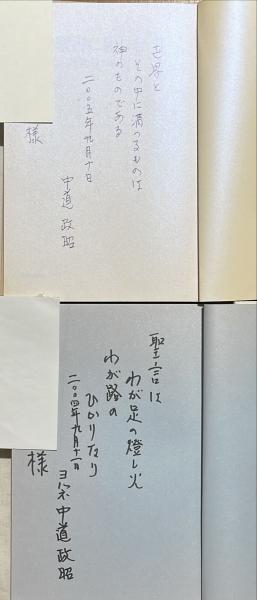 世界と
その中に満つるものは
神のものである
二〇〇五年九月十日
中道 政昭
様
聖言は
わが足の燈し火
わが路の
ひかりなり
二〇〇四年九月十一日
ヨハネ中道政昭
様